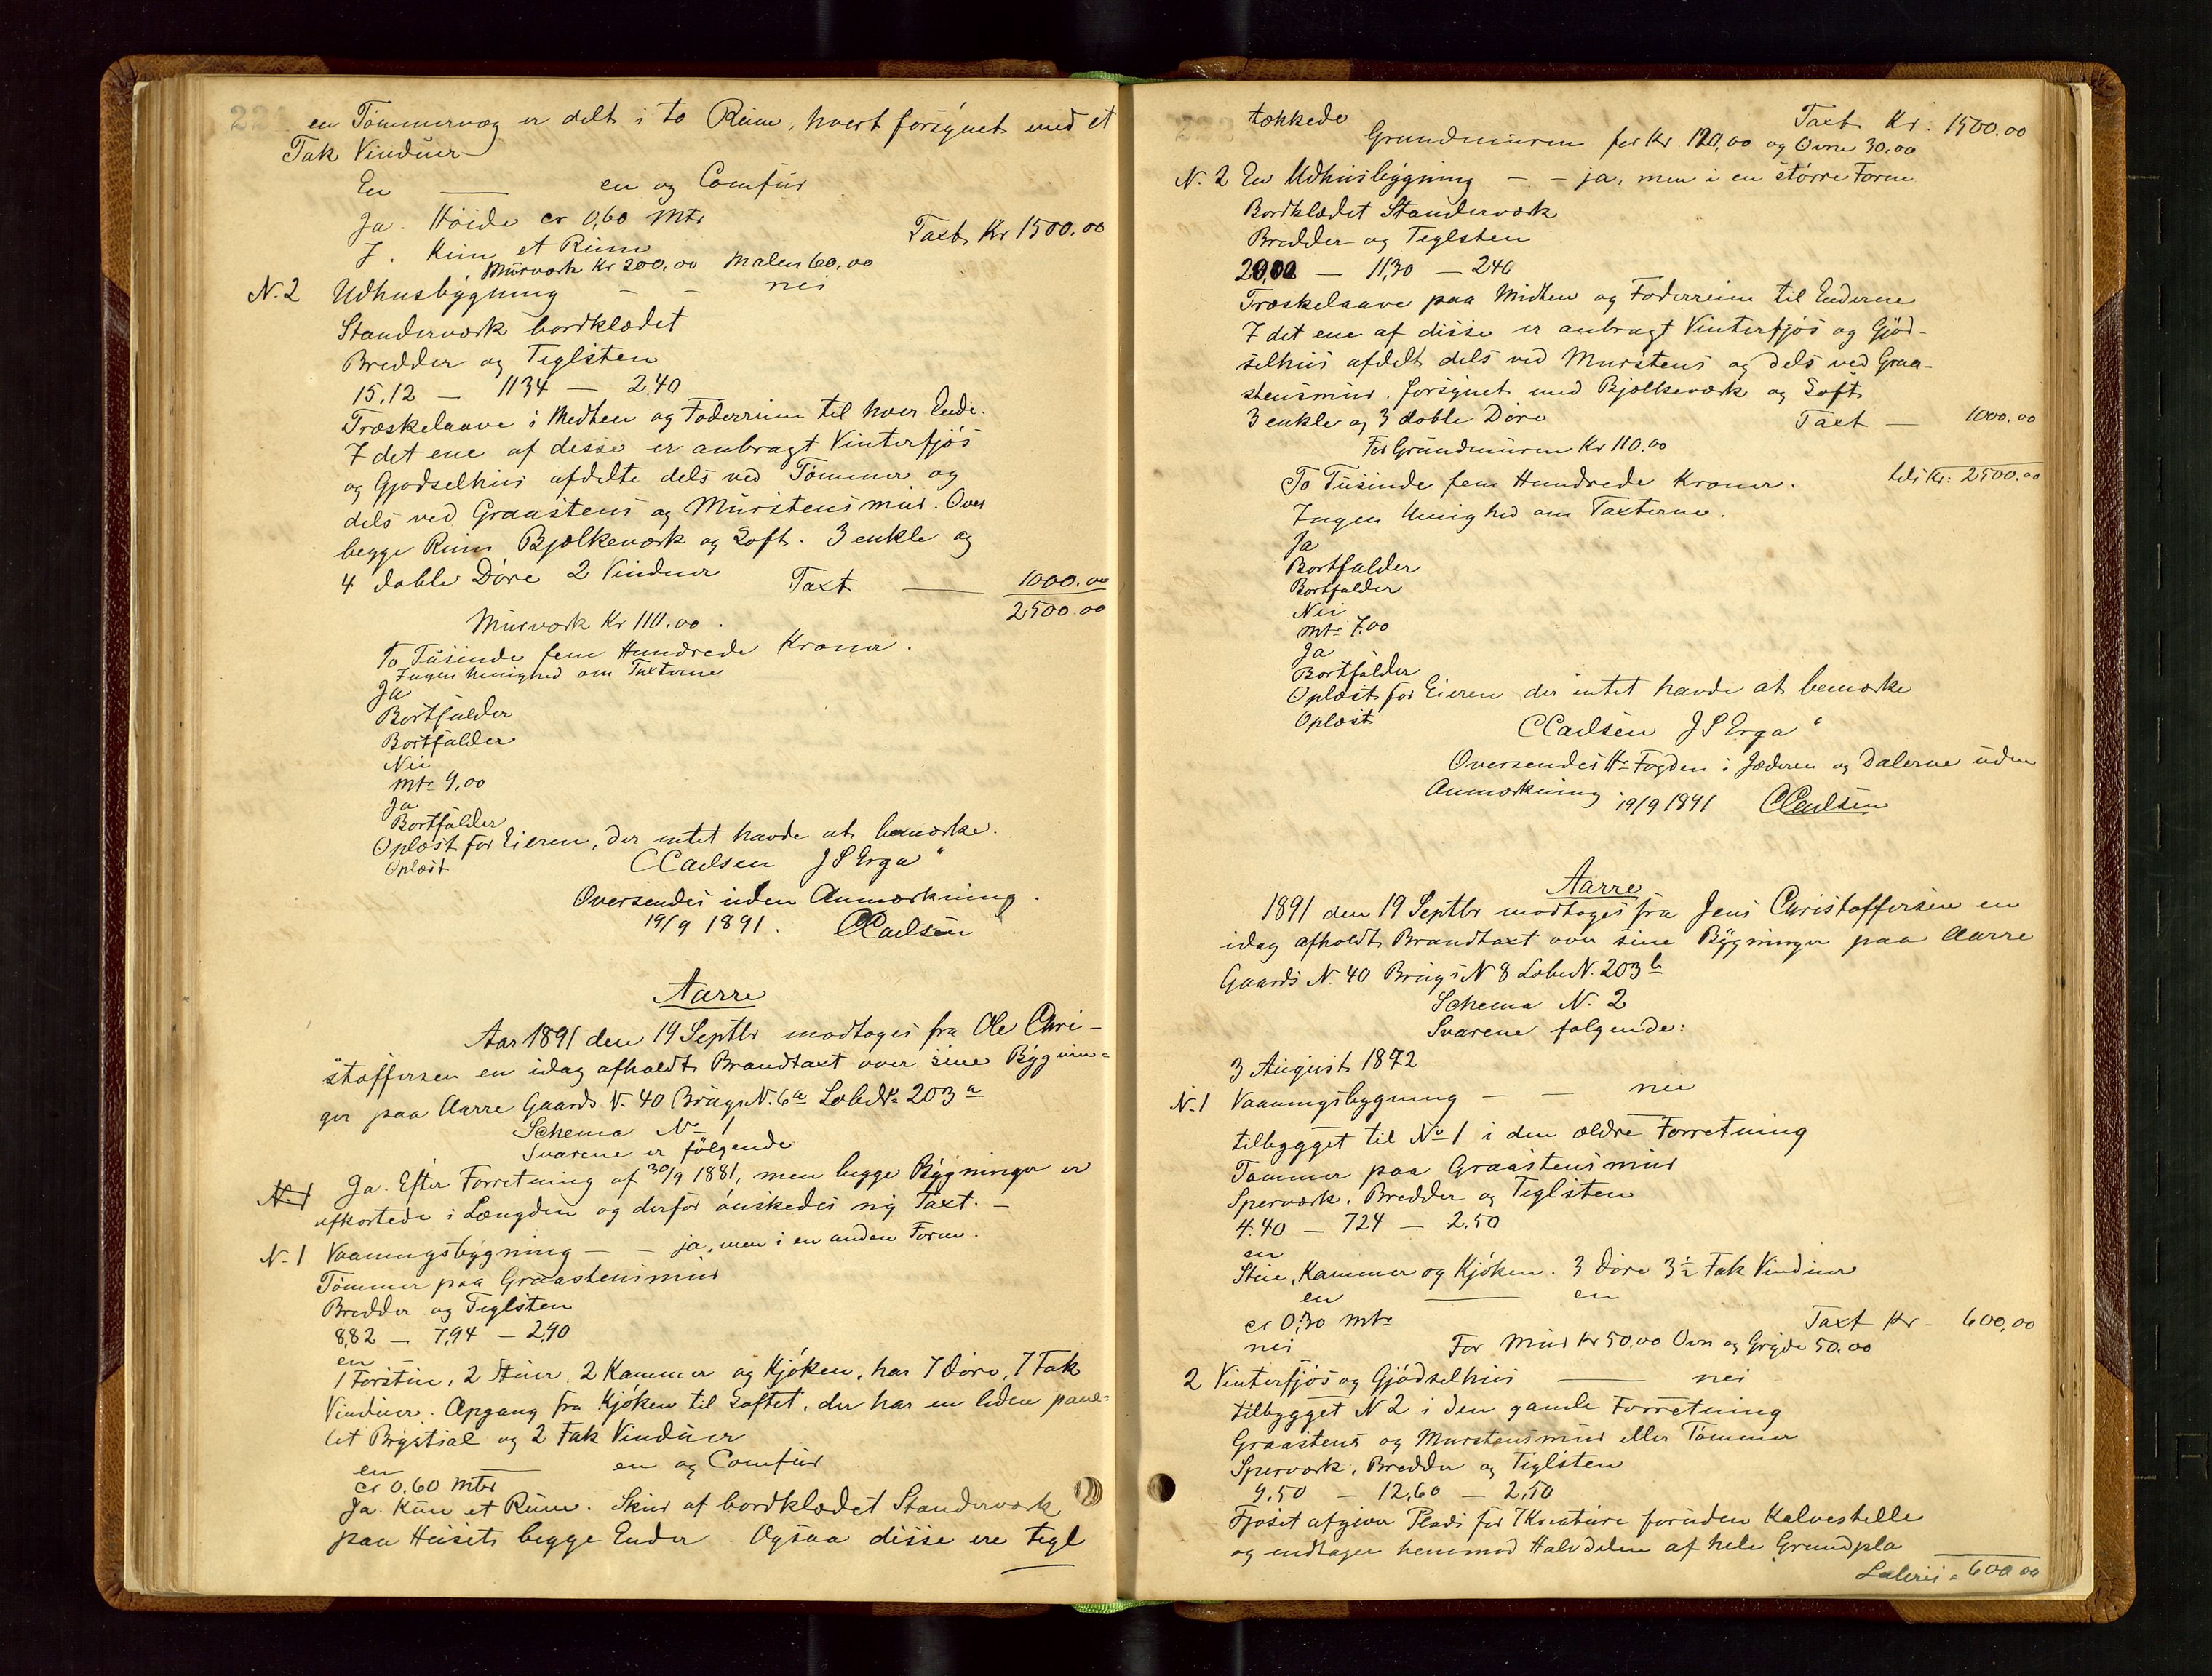 en Tömmervæg er delt i to Rum, hvert forsynet med et
Tak Vinduer
En — en og Comfür
Ja. Höide er 0,60 Mtr
J. Kun et Rum
Taxt Kr 1500.00
Mürværk Kr 200.00 Malen 60,00
N. 2 Udhusbygning — — nei
Standerværk bordklædet
Bredder og Teglsten
15,12 — 1134 — 2,40
Træskelaave i Medten og Foderrum til hver Ende.
I det ene af disse er anbragt Vinterfjös
og Gjødselhus afdelte dels ved Tömmer og
dels ved Graastens og Murstensmur. Over
begge Rum Bjælkeværk og Loft. 3 enkle og
4 doble Döre 2 Vinduer Taxt — 1000.00
2500.00
Mürværk Kr 110.00.
To Tüsinde fem Hundrede Kroner.
Ingen Uenighed om Taxterne
Ja
Bortfalder
Bortfalder
Nei
Mtr 9,00
Ja
Bortfalder
Oplæst for Eieren, der intet havde at bemærke.
Oplæst CCarlsen J S Erga
Oversendes uden Anmærkning.
19/9 1891. CCarlsen
Aarre
Aar 1891 den 19 Septbr modtoges fra Ole Chri-
stoffersen en idag afholdt Brandtaxt over sine Bygnin-
ger paa Aarre Gaards N. 40 Brugs N. 6a LøbeNr 203a
Schema No 1
Svarene er følgende
N. 1 Ja. Efter Forretning af 30/9 1881, men begge Bygninger er
afkortede i Længden og derfor önskedes ny Taxt. —
N. 1 Vaaningsbygning — — ja, men i en anden Form.
Tömmer paa Graastensmur
Bredder og Teglsten
8,82 — 7,94 — 2,90
en
1 Forstue, 2 Stuer, 2 Kammer og Kjöken, har 7 Döre, 7 Fak
Vinduer. Opgang fra Kjöken til Loftet, der har en liden pane-
let Brystsal og 2 Fak Vinduer
en — en og Comfür
er 0,60 Mtr
Ja. Kun et Rum. Skur af bordklædet Standerværk
paa Husets begge Ender. Ogsaa disse ere tegl
tækkede Taxt Kr. 1500.00
Grundmuren for Kr. 120,00 og Ovne 30.00
N. 2 En Udhusbygning — — ja, men i en större Form
Bordklædet Standerværk
Bredder og Teglsten
— 11,30 — 240
Træskelaave paa Midten og Foderrum til Enderne
I det ene af disse er anbragt Vinterfjös og Gjöd-
selhus afdelt dels ved Murstens og dels ved Graa-
stensmur, forsynet med Bjælkeværk og Loft
3 enkle og 3 doble Döre Taxt — 1000.00
For Grundmuren Kr 110.00
tils Kr: 2500.00
To Tüsinde fem Hundrede Kroner.
Ingen Uenighed om Taxterne.
Ja
Bortfalder
Bortfalder
Nei
Mtr 7,00
Ja
Bortfalder
Oplæst for Eieren der intet havde at bemærke
Oplæst
CCarlsen J S Erga
Oversendes Hr Fogden i Jæderen og Dalerne uden
Anmærkning 19/9 1891 CCarlsen
Aarre
1891 den 19 Septbr modtoges fra Jens Christoffersen en
idag afholdt Brandtaxt over sine Bygninger paa Aarre
Gaards N. 40 Brugs N 8 LøbeN. 203b
Schema N. 2
Svarene følgende:
3 August 1872
N. 1 Vaaningsbygning — — nei
tilbygget til No 1 i den ældre Forretning
Tømmer paa Graastensmur
Sperværk, Bredder og Teglsten
4.40 — 724 — 2,50
en
Stue, Kammer og Kjöken. 3 Döre 3½ Fak Vinduer
en — en
er 0,30 Mtr Taxt Kr — 600,00
nei For Mur Kr 50.00 Ovn og Gryde 50.00
2 Vinterfjös og Gjödselhus — nei
tilbygget N 2 i den gamle Forretning
Graastens og Murstensmur eller Tömmer
Sperværk, Bredder og Teglsten
9,50 — 12,60 — 2,50
Fjøset afgiver Plads for 7 Kreature foruden Kalvestelle
og indtager henimod Halvdelen af hele Grundpla
Lateris = 600 00